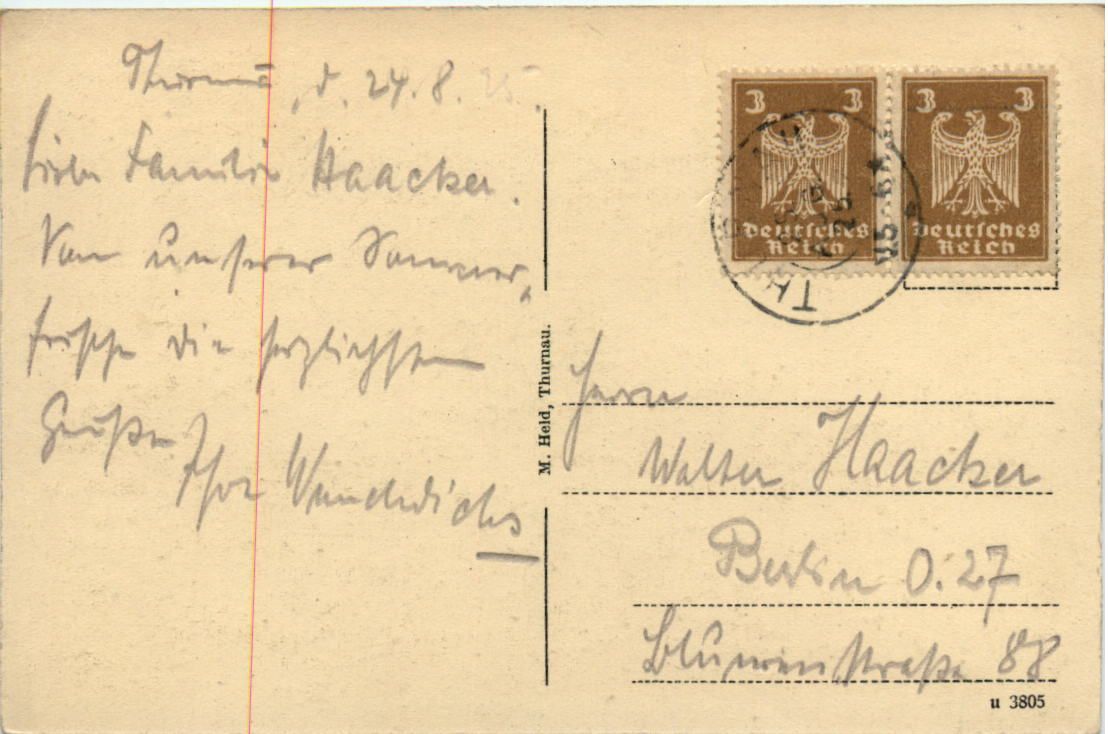 Thurnau, d. 24.8.25.
Liebe Familie Haacker.
Von unserer Sommer-
frische die herzlichsten
Grüße
Ihre
M. Held, Thurnau.
3 3
Deutsches
Reich
3 3
Deutsches
Reich
25
Herrn
Walter Haacker
Berlin O. 27
Blumenstraße 88
u 3805